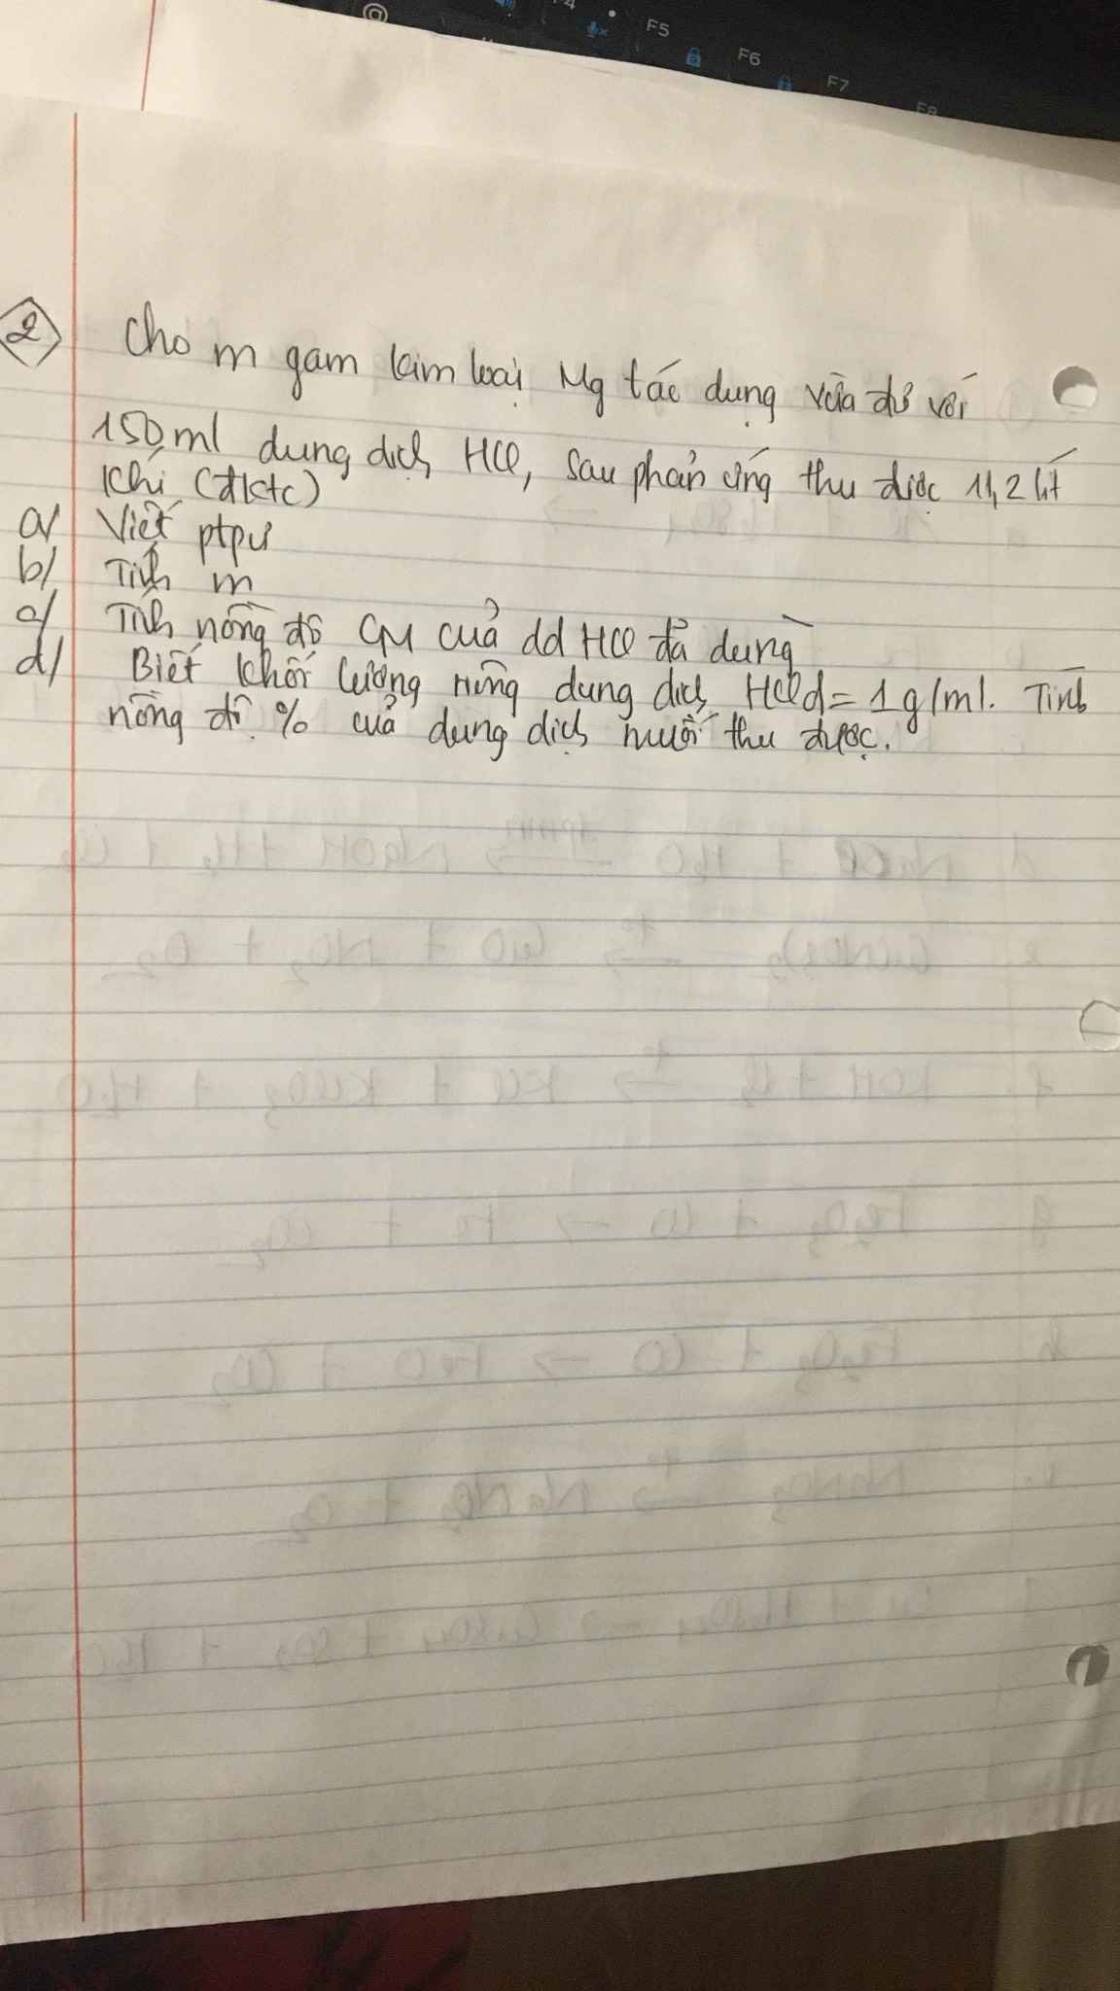 @
F5
F6
F7
F8
2
Cho m gam kim loại Mg tác dụng vừa đủ với
150ml dung dịch HCl, sau phản ứng thu được 11,2 lít
khí (đktc)
a/ Viết ptpư
b/ Tính m
c/ Tính nồng độ CM của dd HCl đã dùng
d/ Biết khối lượng riêng dung dịch HCl d = 1g/ml. Tính
nồng độ % của dung dịch muối thu được.